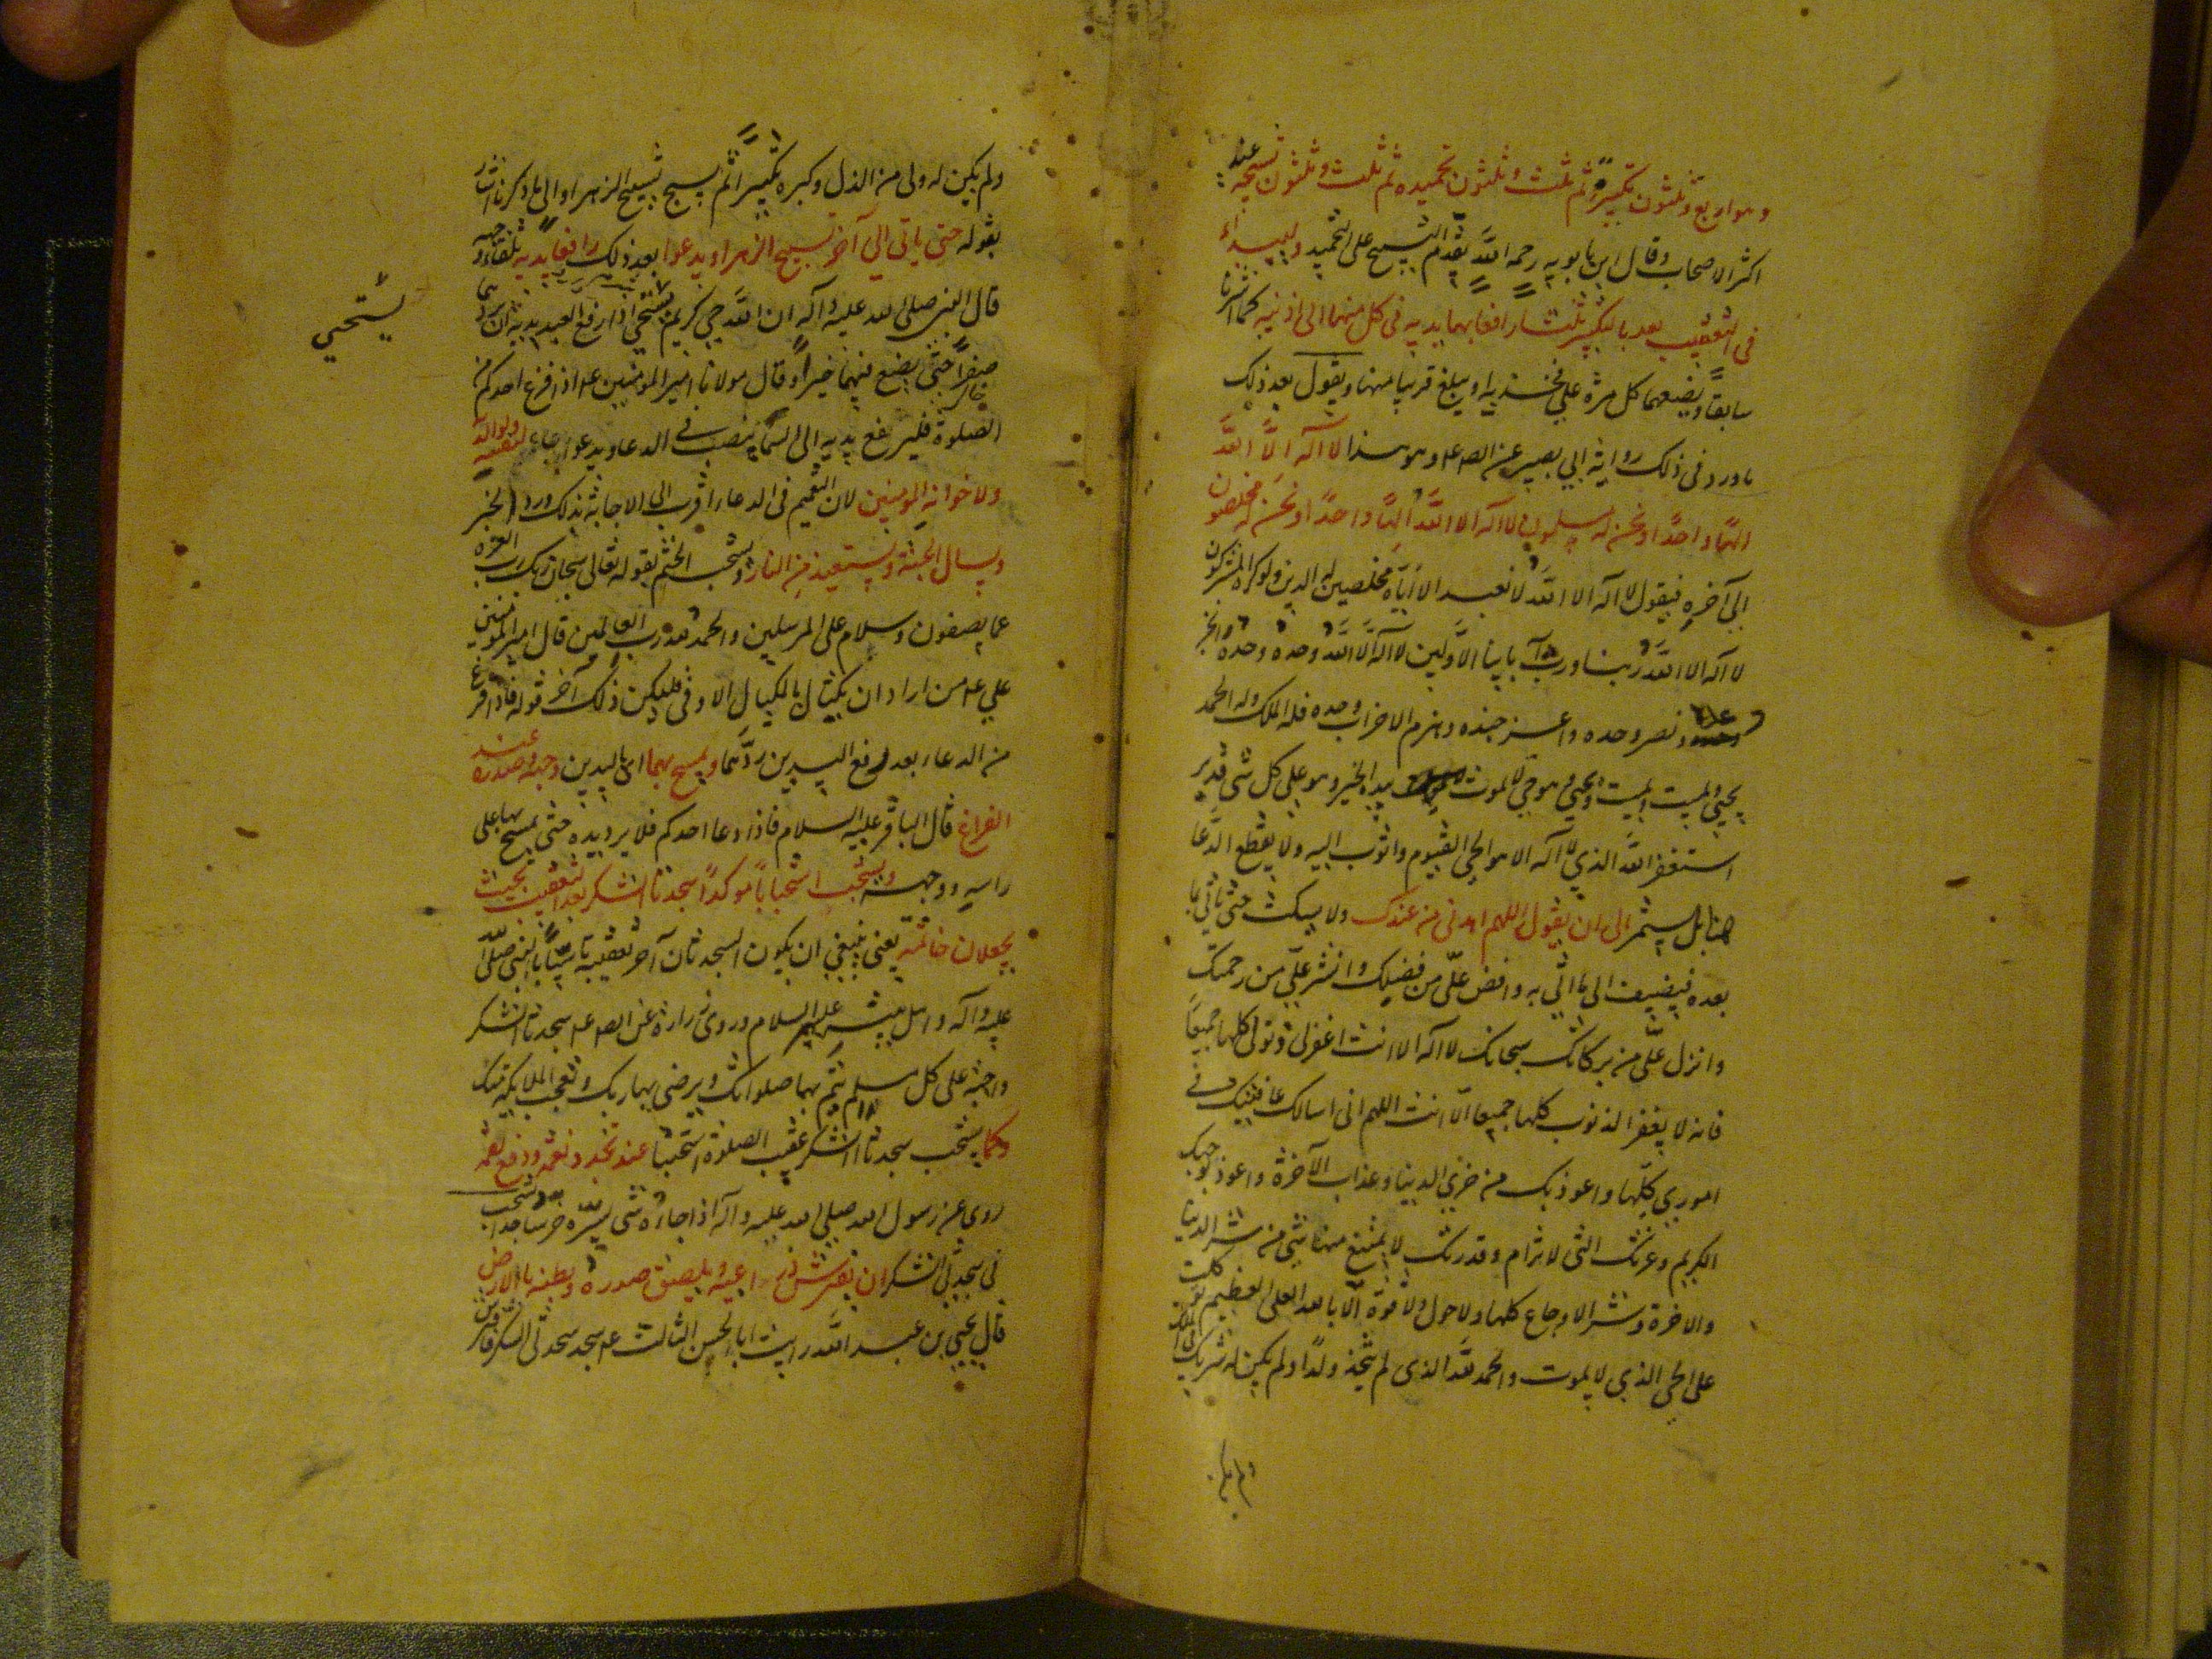 وهو اربع وثلثون تكبيرة ثم ثلث وثلثون تحميده ثم ثلث وثلثون تسبيحه عند
اكثر الاصحاب وقال ابن بابويه رحمه الله يقدم التسبيح على التحميد وليبداء
فى التعقيب بعد بالتكبير ثلثا رافعا بهما يديه فى كل منهما الى اذنيه كما اشرنا
سابقا ويضعهما كل مرة على فخذيه او يبلغ قريبا منهما ويقول بعد ذلك
ما ورد فى ذلك رواية ابي بصير عن الصه عم وهو هذا لا اله الا الله
الها واحدا ونحن له مسلمون لا اله الا الله الها واحدا ونحن له مخلصون
الى آخره فيقول لا اله الا الله لا نعبد الا اياه مخلصين له الدين ولو كره المشركون
لا اله الا الله ربنا ورب آبائنا الاولين لا اله الا الله وحده وحده وحده انجز
وعده ونصر وحده واعز جنده وهزم الاحزاب وحده فله الملك وله الحمد
يحيي ويميت ويميت ويحيي وهو حي لا يموت بيده الخير وهو على كل شي قدير
استغفر الله الذي لا اله الا هو الحي القيوم واتوب اليه ولا يقطع الدعا
هنا بل يستمر الى ان يقول اللهم اهدنى من عندك ولا يسكت حتى ياتي بما
بعده فيضيف الى ما اتى به وافض علي من فضلك وانشر علي من رحمتك
وانزل علي من بركاتك سبحانك لا اله الا انت اغفر لى ذنوبى كلها جميعا
فانه لا يغفر الذنوب كلها جميعا الا انت اللهم انى اسالك عافيتك فى
اموري كلها واعوذ بك من خزي الدينا وعذاب الآخرة واعوذ بوجهك
الكريم وعزتك التى لا ترام وقدرتك لا يمتنع منها شي من شر الدنيا
والاخرة وشر الاوجاع كلها ولا حول ولا قوة الا بالله العلى العظيم توكلت
على الحي الذي لا يموت والحمد لله الذى لم يتخذ ولدا ولم يكن له شريك فى الملك
ولم يكن
ولم يكن له ولى من الذل وكبره تكبيرا ثم يسبح تسبيح الزهرا والى ما ذكرنا اشار
بقوله حتى ياتى الى آخر تسبيح الزهرا ويدعوا بعد ذلك رافعا يديه تلقاء وجهه
قال النبى صلى الله عليه وآله ان الله حي كريم يستحي اذا رفع العبد يديه ان يردهما
يستحيي
صفرا حتى يضع فيهما خيرا وقال مولانا امير المومنين عم اذا فرغ احدكم من
الصلوة فليرفع يديه الى السما ينصب فى الدعا ويدعوا لنفسه ولوالديه
ولاخوانه المومنين لان التعميم فى الدعاء اقرب الى الاجابة بذلك ورد الخبر
ويسال الجنة ويستعيذ من النار ويستحب الختم بقوله تعالى سبحان ربك رب العزة
عما يصفون وسلام على المرسلين والحمد لله رب العالمين قال امير المومنين
علي عم من اراد ان يكتال بالمكيال الاوفى فليكن ذلك آخر قوله فاذا فرغ
من الدعاء بعد رفع اليدين ردهما ويمسح بهما اى باليدين وجهه وصدره عند
الفراغ قال الباقر عليه السلام فاذا دعا احدكم فلا يرد يده حتى يمسح بها على
راسه ووجهه ويستحب استحبابا موكدا سجدتا الشكر بعد التعقيب بحيث
يجعلان خاتمته يعنى ينبغى ان يكون السجدتان آخر تعقيبه تاسيا بالنبى صلى الله
عليه وآله واهل بيته عليهم السلام وروى زرارة عن الصه عم سجدتا الشكر
واجبة على كل مسلم تتم بهما صلواتك ويرضى بهما ربك وتعجب الملائكة منك
وكما يستحب سجدتا الشكر عقيب الصلوة استحبتا عند تجدد نعمة ودفع نقمة
روى عن رسول الله صلى الله عليه وآله اذا جاءه شى يسره خر ساجدا ويستحب
فى سجدتى الشكر ان يفترش ذراعيه ويلصق صدره وبطنه بالارض
قال يحيى بن عبد الله رايت ابا الحسن الثالث عم سجد سجدتى الشكر فافترش